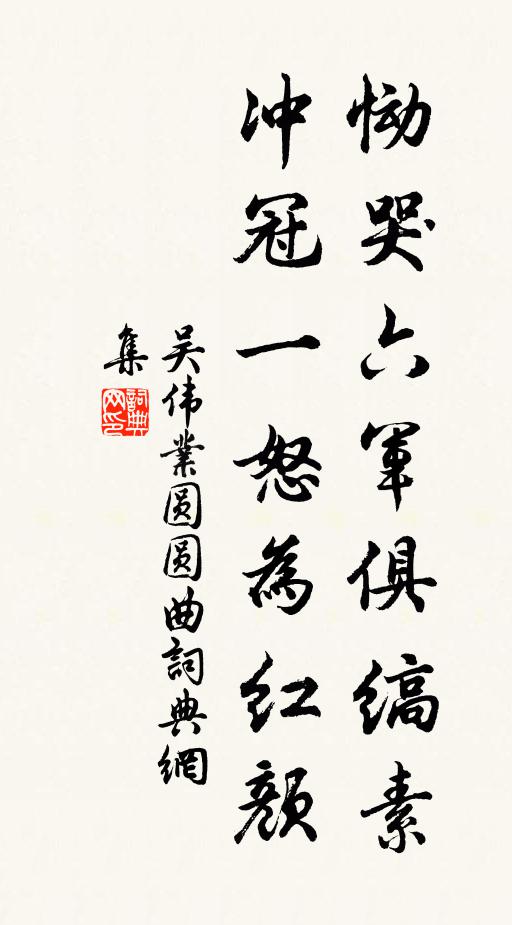 恸哭六軍俱缟素
冲冠一怒為红顏
吴伟業圆圆曲詞典網
集
詞典网印